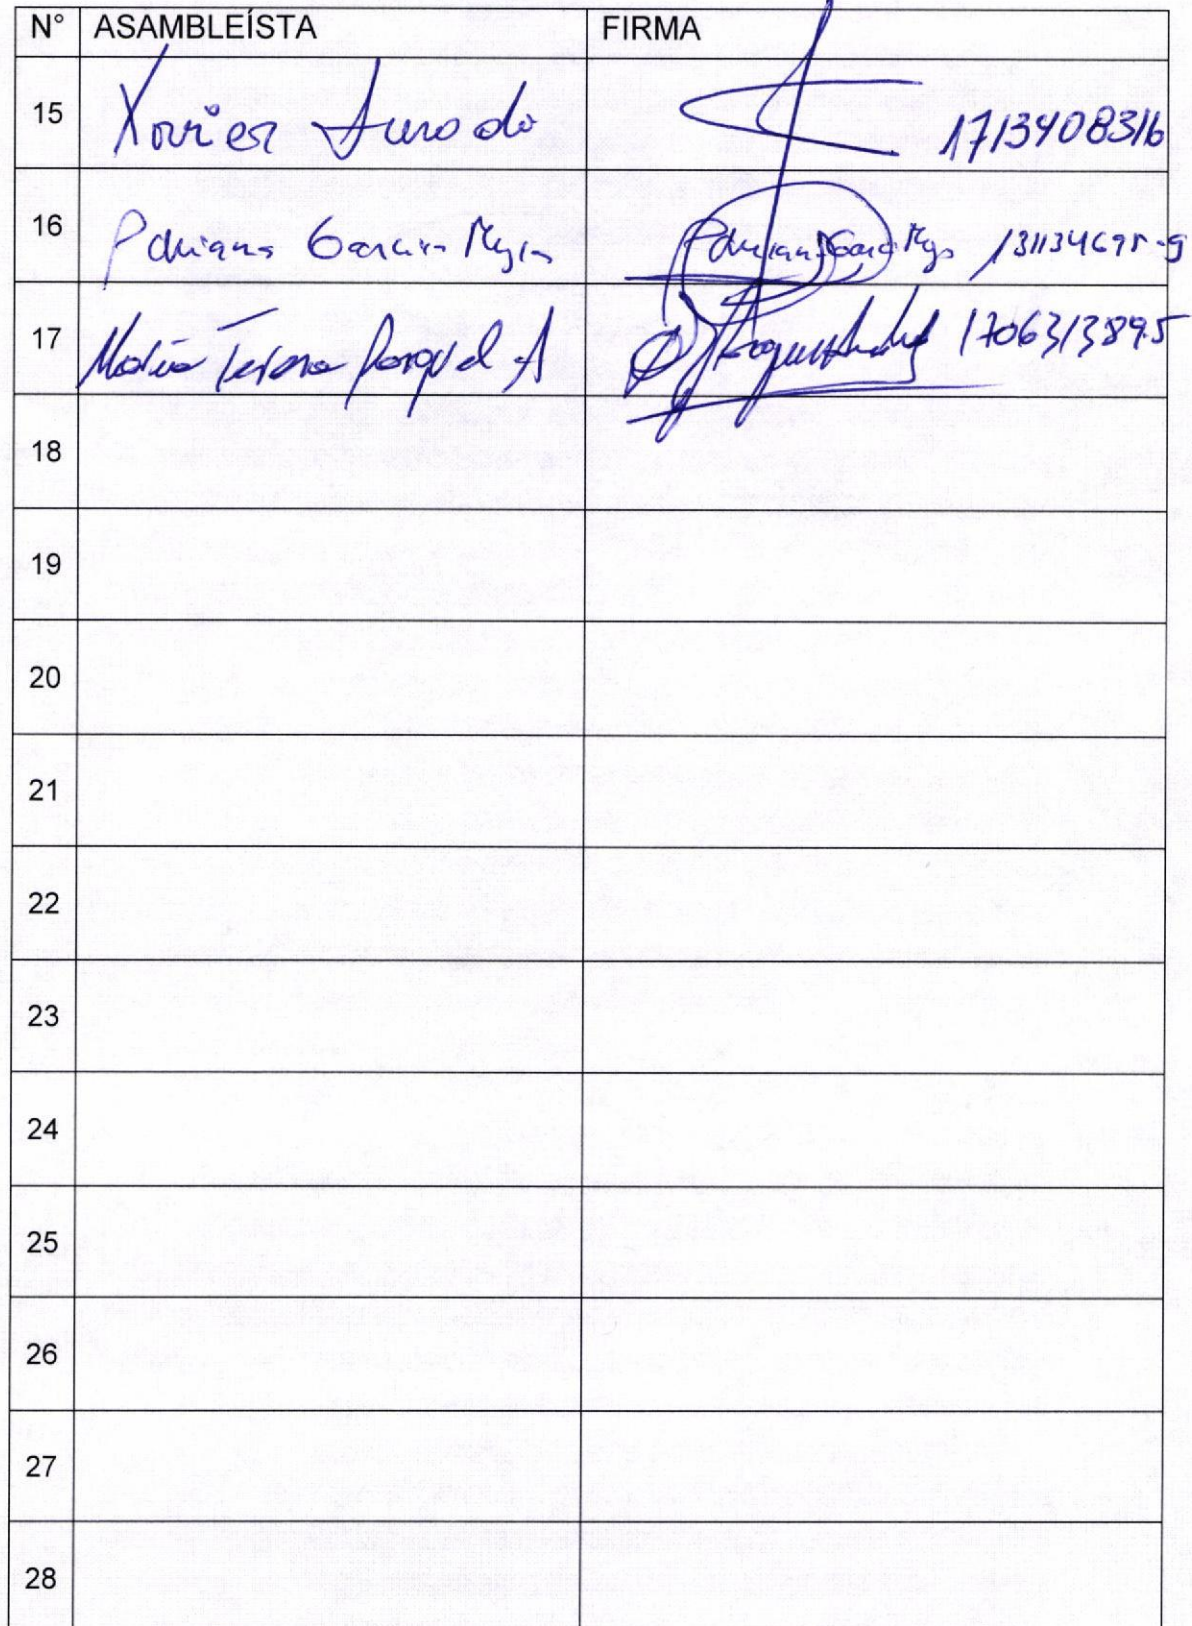 N° ASAMBLEÍSTA FIRMA
15 Xavier Jurado 1713408316
16 Adriana García Mejía Adriana García Mejía 131134695-9
17 María Teresa Pasquel A 170631389-5
18
19
20
21
22
23
24
25
26
27
28